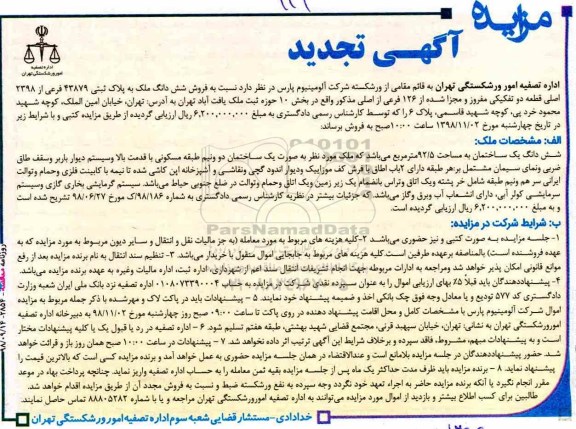 مزایده
آگهی تجدید
اداره تصفیه
امور ورشکستگی تهران
اداره تصفیه امور ورشکستگی تهران به قائم مقامی از ورشکسته شرکت آلومینیوم پارس در نظر دارد نسبت به فروش شش دانگ ملک به پلاک ثبتی ۴۳۸۷۹ فرعی از ۲۳۹۸
اصلی قطعه دو تفکیکی مفروز و مجزا شده از ۱۲۶ فرعی از اصلی مذکور واقع در بخش ۱۰ حوزه ثبت ملک یافت آباد تهران به آدرس: تهران، خیابان امین الملک، کوچه شهید
محمود خرد پی، کوچه شهید قاسمی، پلاک ۶ را که توسط کارشناس رسمی دادگستری به مبلغ ۶,۲۰۰,۰۰۰,۰۰۰ ریال ارزیابی گردیده از طریق مزایده کتبی و با شرایط زیر
در تاریخ چهارشنبه مورخ ۱۳۹۸/۱۱/۰۲ ساعت ۱۰:۰۰ صبح به فروش برساند:
الف: مشخصات ملک:
شش دانگ یک ساختمان به مساحت ۹۲/۵ مترمربع می‌باشد که ملک مورد نظر به صورت یک ساختمان دو ونیم طبقه مسکونی با قدمت بالا وسیستم دیوار باربر وسقف طاق
ضربی ونمای سیمان مشتمل برهر طبقه دارای ۲باب اطاق با فرش کف موزاییک ودیوار اندود گچی ونقاشی و آشپزخانه این کاشی شده تا نیمه با کابینت فلزی وحمام وتوالت
ایرانی سر هم ونیم طبقه شامل خر پشته ویک اتاق وتراس بانضمام یک زیر زمین ویک اتاق وحمام وتوالت در ضلع جنوبی حیاط می‌باشد. سیستم گرمایشی بخاری گازی وسیستم
سرمایشی کولر آبی، دارای انشعاب آب وبرق وگاز می‌باشد که جزئیات بیشتر در نظریه کارشناس رسمی دادگستری به شماره ۹۸/۱۸۶ک مورخ ۹۸/۰۶/۲۷ تشریح شده است
و به مبلغ ۶,۲۰۰,۰۰۰,۰۰۰ ریال ارزیابی گردیده است.
ب: شرایط شرکت در مزایده:
۱- جلسه مزایده به صورت کتبی و نیز حضوری می‌باشد ۲-کلیه هزینه های مربوط به مورد معامله (به جز مالیات نقل و انتقال و سایر دیون مربوط به مورد مزایده که به
عهده فروشنده است) بالمناصفه برعهده طرفین است کلیه هزینه های مربوط به جابجایی اموال منقول با خریدار می‌باشد. ۳- تنظیم سند انتقال به نام برنده مزایده بعد از رفع
موانع قانونی امکان پذیر خواهد شد ومراجعه به ادارات مربوطه جهت انجام تشریفات انتقال سند اعم از شهرداری، اداره ثبت، اداره مالیات وغیره به عهده برنده مزایده می‌باشد.
۴- پیشنهاددهندگان باید قبلاً ۵٪ بهای ارزیابی اموال را به عنوان سپرده نقدی شرکت در مزایده به حساب ۰۱۰۸۰۷۲۳۹۰۰۰۴ اداره تصفیه نزد بانک ملی ایران شعبه وزارت
دادگستری کد ۵۷۷ تودیع و یا معادل وجه فوق چک بانکی اخذ و ضمیمه پیشنهاد خود نمایند. ۵- پیشنهادات باید در پاکت لاک و مهرشده با ذکر جمله مربوط به مزایده
اموال شرکت آلومینیوم پارس با مشخصات کامل و محل اقامت پیشنهاد دهنده در روی پاکت تا ساعت ۰۹:۰۰ صبح روز چهارشنبه مورخ ۹۸/۱۱/۰۲ به دبیرخانه اداره تصفیه
امورورشکستگی تهران به نشانی: تهران، خیابان سپهبد قرنی، مجتمع قضایی شهید بهشتی، طبقه هفتم تسلیم شود. ۶- اداره تصفیه در رد یا قبول یک یا کلیه پیشنهادات مختار
است و به پیشنهادات مبهم، مشروط، فاقد سپرده و برخلاف شرایط این آگهی ترتیب اثر داده نخواهد شد. ۷- پیشنهادات در ساعت ۱۰:۰۰ صبح همان روز باز و قرائت خواهد
شد. حضور پیشنهاددهندگان در جلسه مزایده بلامانع است و عندالاقتضاء در همان جلسه مزایده حضوری به عمل خواهد آمد و برنده مزایده کسی است که بالاترین قیمت را
پیشنهاد نماید. ۸- برنده مزایده باید ظرف مدت حداکثر یک ماه پس از جلسه مزایده بقیه ثمن معامله را به حساب اداره تصفیه واریز نماید. چنانچه پرداخت بهاء در موعد
مقرر انجام نگیرد یا آنکه برنده مزایده حاضر به اجراء تعهد خود نگردد وجه سپرده به نفع ورشکسته ضبط و نسبت به فروش مجدد آن از طریق مزایده اقدام خواهد شد.
طالبین برای کسب اطلاع بیشتر و بازدید از اموال مورد مزایده می‌توانند به اداره تصفیه امورورشکستگی تهران مراجعه و یا با شماره ۸۸۸۰۵۲۸۲ تماس حاصل نمایند.
خدادادی-مستشار قضایی شعبه سوم اداره تصفیه امور ورشکستگی تهران
ParsNamadData